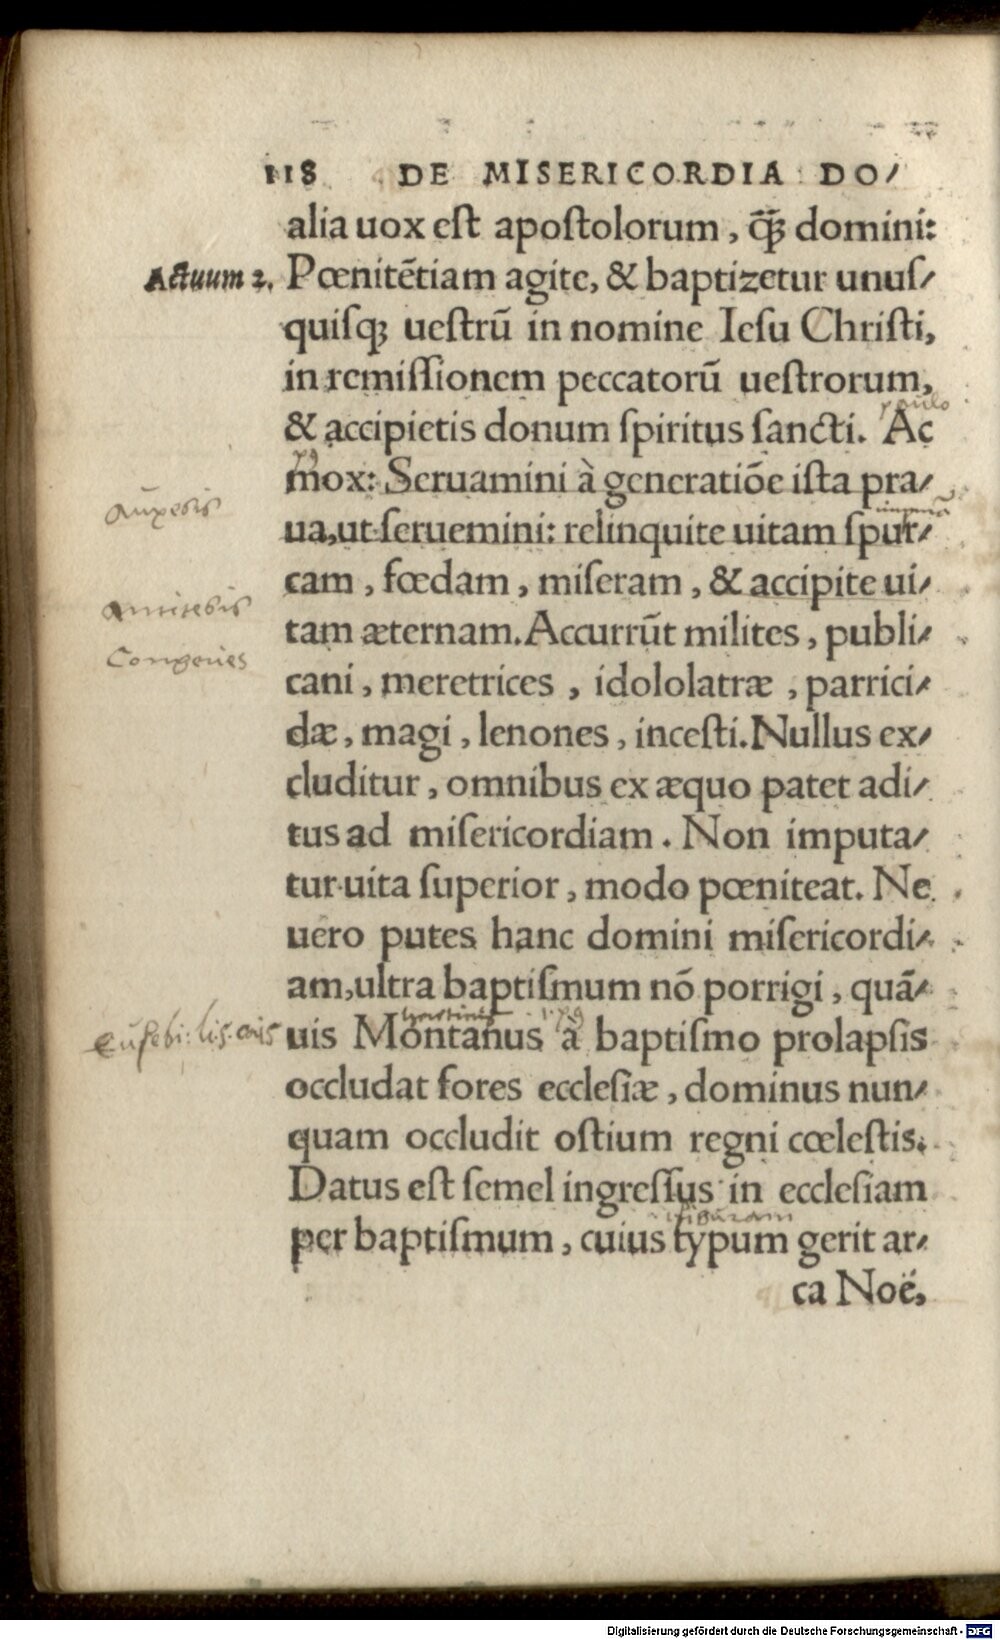 118 DE MISERICORDIA DO⸗
alia uox est apostolorum, q̄ꝫ domini:
Actuum 2. Pœnitētiam agite, & baptizetur unuſ⸗
quiſqꝫ ueſtrū in nomine Ieſu Chriſti,
in remiſſionem peccatorū ueſtrorum,
paulo
& accipietis donum ſpiritus ſancti. Ac
mox: Seruamini à generatiōe iſta pra⸗
Auxesis
ua, ut ſeruemini: relinquite uitam ſpur⸗
cam, fœdam, miſeram, & accipite ui⸗
tam æternam. Accurrūt milites, publi⸗
Congeries
cani, meretrices, idololatræ, parrici⸗
dæ, magi, lenones, inceſti. Nullus ex⸗
cluditur, omnibus ex æquo patet adi⸗
tus ad miſericordiam. Non imputa⸗
tur uita ſuperior, modo pœniteat. Ne
uero putes hanc domini miſericordi⸗
am, ultra baptiſmum nō porrigi, quā⸗
uis Montanus à baptiſmo prolapſis
occludat fores eccleſiæ, dominus nun⸗
quam occludit oſtium regni cœleſtis.
Datus eſt ſemel ingreſſus in eccleſiam
figuram
per baptiſmum, cuius typum gerit ar⸗
ca Noë,
Digitalisierung gefördert durch die Deutsche Forschungsgemeinschaft - DFG